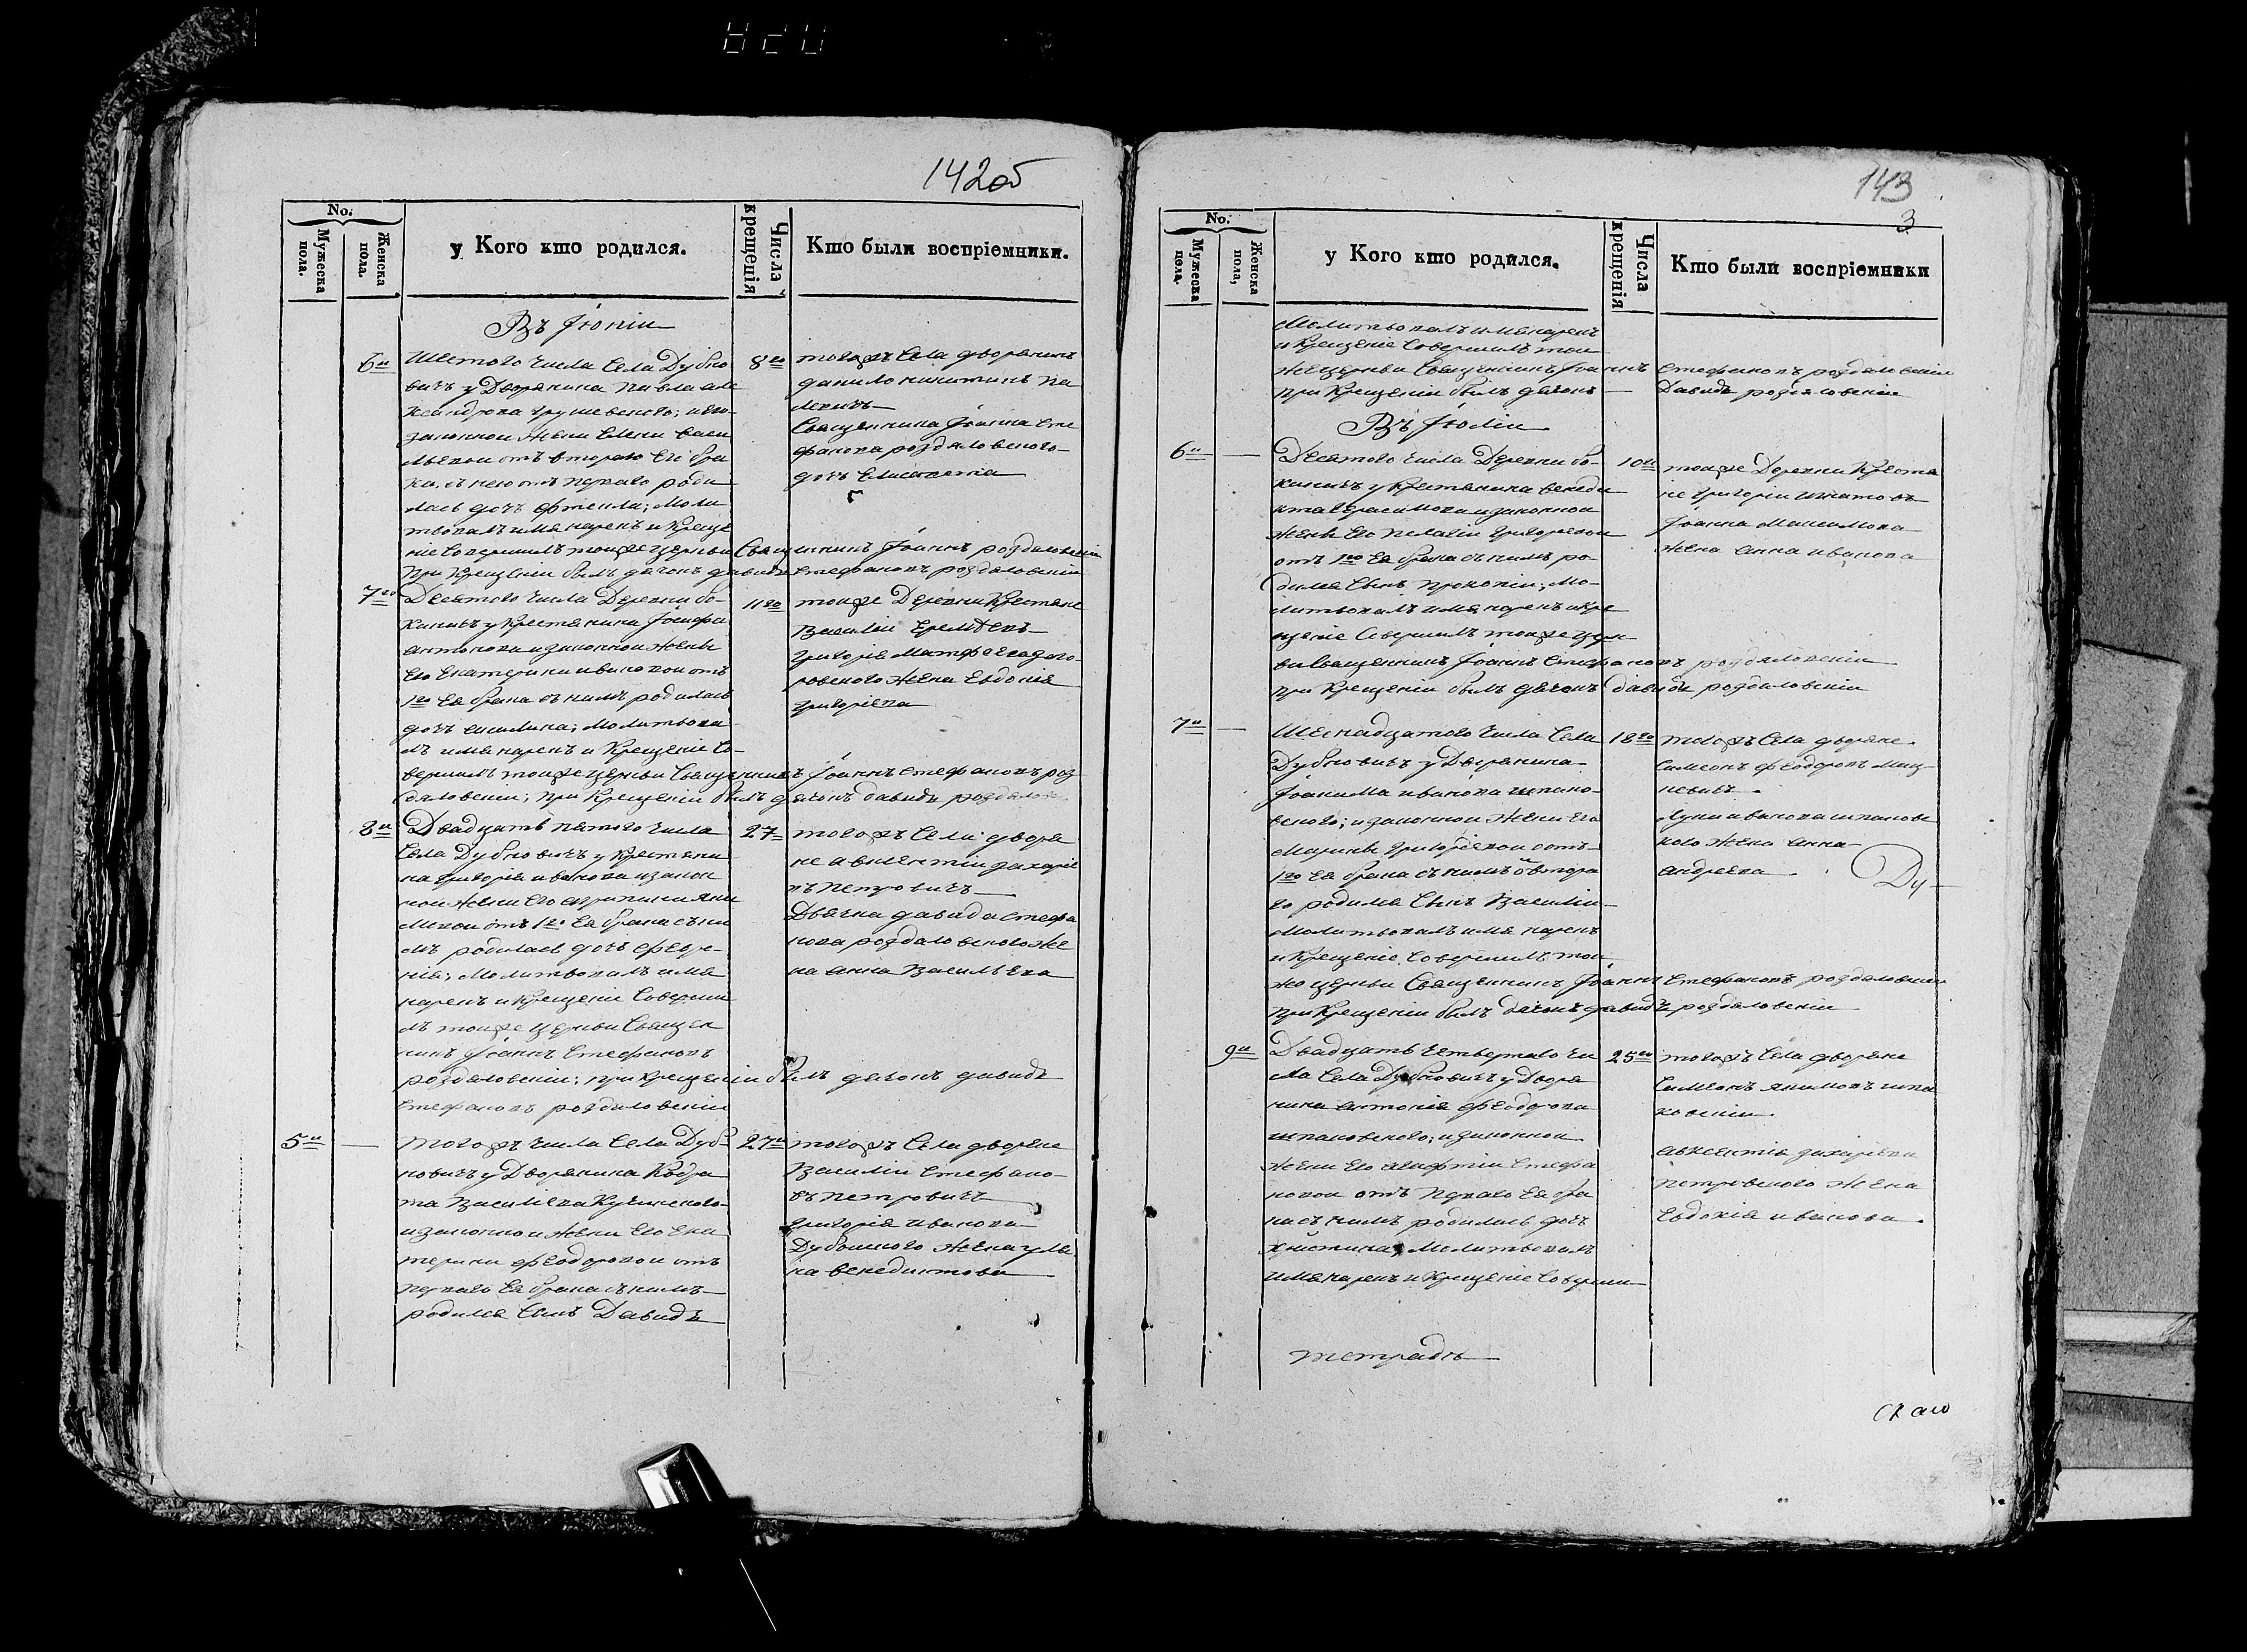 142об
No.
Мужеска пола.
Женска пола.
у Кого кто родился.
Числа крещенія
Кто были воспріемники.
Въ Іюніи
6й
Шестого числа села Дубно
вичъ у Дворянина Павла але
ксандрова Грушевского; и его
законной жены Елены васи
льевой отъ второго его бра
ка, съ нею отъ перваго роди
лась дочь Фтекла; Моли
твовалъ имя нарекъ и Креще
ніе Совершилъ тойже Церкви Священникъ Іоаннъ роздяловскіи
При Крещеніи былъ дячокъ давидъ Стефановъ роздяловскіи
8го
тогожъ Села дворянинъ
данило никитинъ Па
Священника Іоанна Сте
фанова роздяловского
дочь Елисавета
7го
Десятого числа Деревни бо
кинычъ у Крестянина Іосифа
антонова и законной жены
Его Екатерины ивановой отъ
1го Ея брака съ нимъ родилась
дочь акилина; Молитвова
лъ имя нарекъ и Крещеніе Со-
вершилъ тойже Церкви Священникъ Іоаннъ Стефановъ роз
дяловскіи; при Крещеніи былъ дячокъ давидъ роздялов
11го
тойже Деревни Крестяне
Василіи
Григорія Матфеева
жена Евдокія
Григоріева
8й
Двадцать пятого числа
Села Дубновичъ у Крестяни
на Григорія иванова и закон
ной жены Его агрипины яки
мовой отъ 1го Ея брака съ ни
мъ родилась дочь Февро-
нія; Молитвовалъ имя
нарекъ и Крещеніе Соверши
лъ тойже Церкви Священ
никъ Іоаннъ Стефановъ
роздяловскіи; при Крещеніи былъ дячокъ давидъ
Стефановъ роздяловскіи
27
тогожъ Села дворя
не авксентіи захаріе
въ Петровичъ
Дьячка давида Стефа
нова роздяловского же
на анна Васильева
5й
Тогожъ числа Села Дуб-
новичъ у Дворянина Кодра
та Василева Кучинского
и законной жены Его Ека
терины Феодоровой отъ
перваго Ея брака съ нимъ
родился Сынъ Давидъ
27й
тогожъ Села дворяне
Василіи Стефано-
въ Петровичъ
Григорія иванова
жена улья
на венедиктова
143
3
No.
Мужеска пола,
Женска пола,
у Кого кто родился.
Числа крещенія
Кто были воспріемники
Молитвовалъ имя нарекъ
и Крещеніе Совершилъ той
же Церкви Священникъ Іоаннъ Стефановъ роздяловскіи
при Крещеніи былъ дячокъ Давидъ роздяловскіи
Въ Іюліи
6й
Десятого числа Деревни бо-
кинычъ у Крестянина венеди
кта Герасимова и законной
жены Его Пелагіи Григорьевой
отъ 1го Ея брака съ нимъ ро-
дился Сынъ Прокопіи; Мо-
литвовалъ имя нарекъ и Кре
щеніе Совершилъ тойже Церк-
ви Священникъ Іоаннъ Стефановъ роздяловскіи
при Крещеніи былъ дячокъ давидъ роздяловскіи
10го
тойже Деревни Крестя
не Григоріи игнатовъ
Іоанна Максимова
жена анна иванова
7й
Шеснадцатого числа Села
Дубновичъ у Дворянина
Іоакима иванова шпако-
вского; и законной жены его
Марины Григоріевой отъ
1го Ея брака съ нимъ отъ втора
го родился Сынъ Василіи
Молитвовалъ имя нарекъ
и Крещеніе Совершилъ той
же церкви Священникъ Іоаннъ Стефановъ роздяловскіи
при Крещеніи былъ дячокъ давидъ роздяловскіи
18го
тогожъ Села дворяне
Симеонъ Феодоровъ Миц-
кевичъ
Луки иванова шпаковс
кого жена анна
андреева
Ду-
9й
Двадцать четвертого чи
сла Села Дубновичъ у Дворя
нина антонія Феодорова
шпаковского; и законной
жены Его агафтіи Стефа
новой отъ перваго Ея бра
ка съ нимъ родилась дочь
христина; Молитвовалъ
имя нарекъ и Крещеніе Соверши
25го
тогожъ Села дворяне
Симеонъ якимовъ шпа
ковскіи
авксентія захаріева
Петровского жена
Евдокія иванова
тетрадь